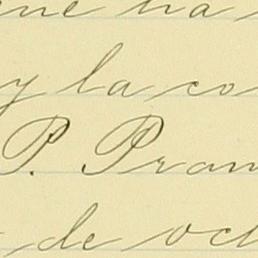 ne ha
y la co
P. Pran
de oct